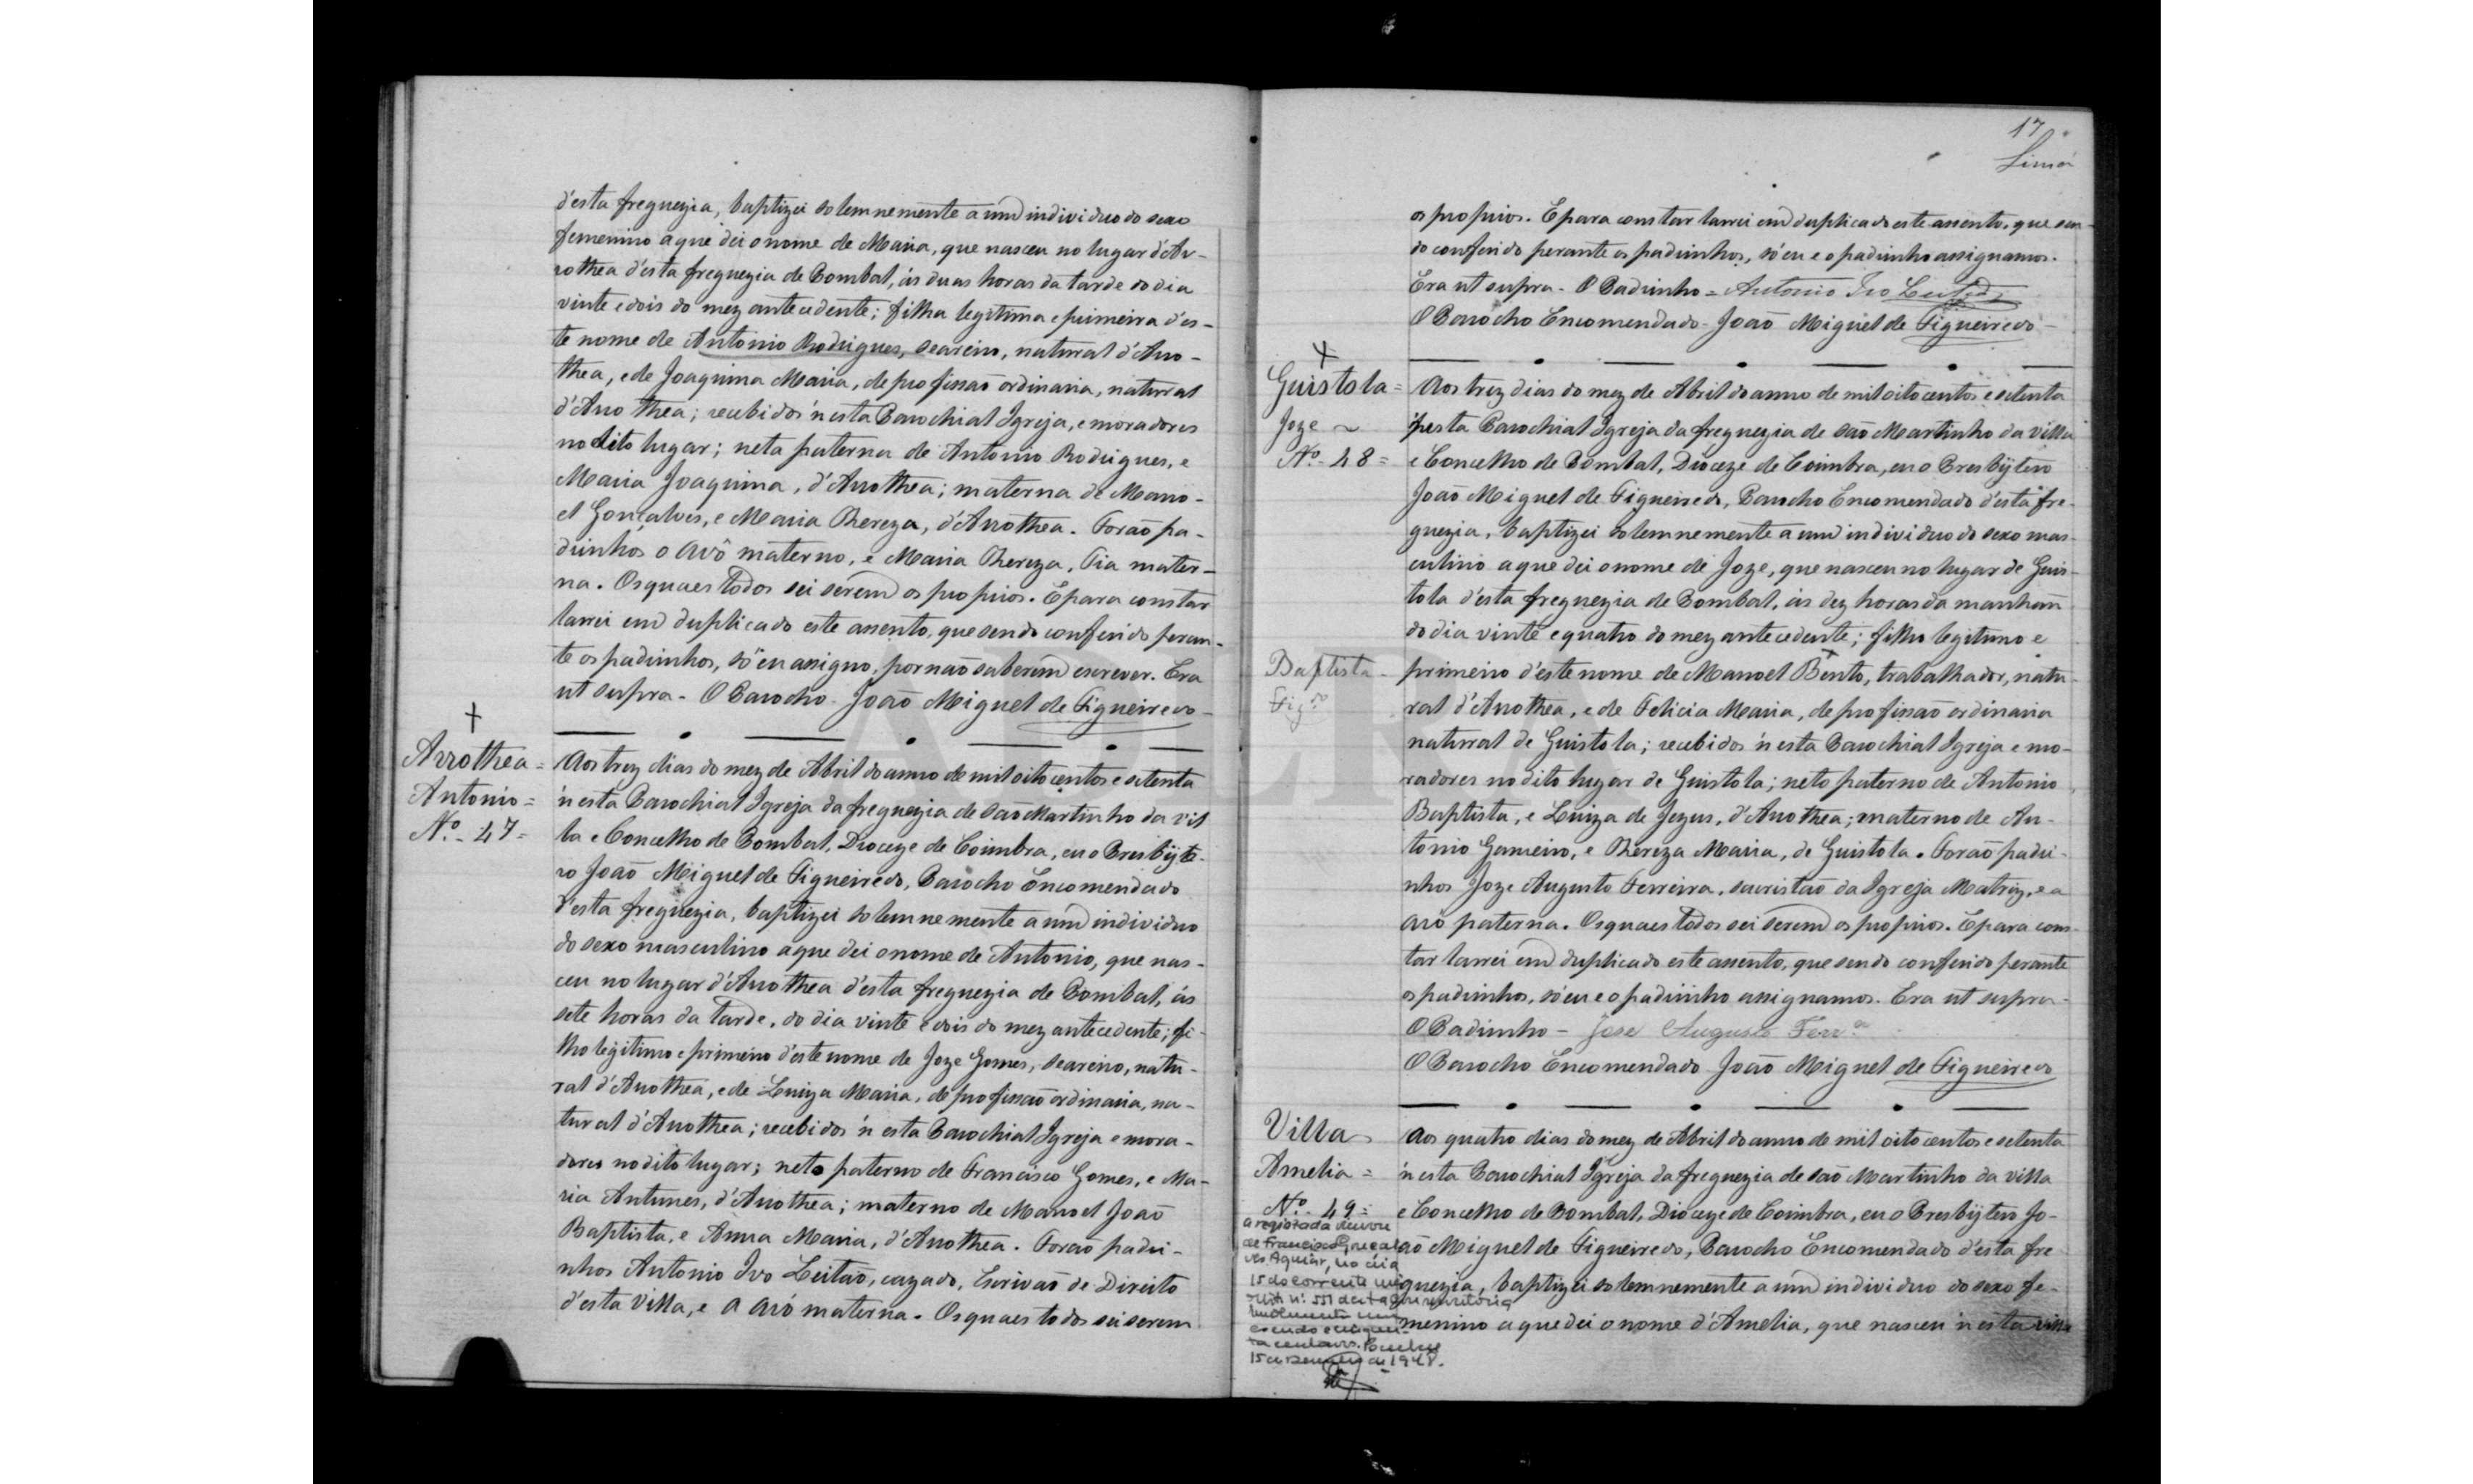 d'esta freguezia, baptizei solemnemente a um individuo do sexo
femenino a que dei o nome de Maria, que nasceu no lugar d'Ar-
rothea d'esta freguezia de Pombal, ás duas horas da tarde do dia
vinte e dois do mez antecedente; filha legitima e primeira d'es-
te nome de Antonio Rodrigues, seareiro, natural d'Arro-
thea, e de Joaquina Maria, de profissaõ ordinaria, natural
d'Arrothea; recebidos n'esta Parochial Igreja, e moradores
no dito lugar; neta paterna de Antonio Rodrigues, e
Maria Joaquina, d'Arrothea; materna de Mano-
el Gonçalves, e Maria Thereza, d'Arrothea. Foraõ pa-
drinhos o avô materno, e Maria Thereza, Tia mater-
na. Os quaes todos sei serem os proprios. E para constar
lavrei em duplicado este assento, que sendo conferido peran-
te os padrinhos, só eu assigno, por naõ saberem escrever. Era
ut supra - O Parocho - Joaõ Miguel de Figueiredo -
Arrothea =
Antonio =
Nº - 47 =
Aos trez dias do mez de Abril do anno de mil oito centos e setenta
n'esta Parochial Igreja da freguezia de Saõ Martinho da vil
la e Concelho de Pombal, Dioceze de Coimbra, eu o Presbÿte-
ro Joaõ Miguel de Figueiredo, Parocho Encomendado
d'esta freguezia, baptizei solemnemente a um individuo
do sexo masculino a que dei o nome de Antonio, que nas-
ceu no lugar d'Arrothea d'esta freguezia de Pombal, ás
sete horas da tarde, do dia vinte e dois do mez antecedente; fi-
lho legitimo e primeiro d'este nome de Joze Gomes, seareiro, natu-
ral d'Arrothea, e de Luiza Maria, de profissaõ ordinaria, na-
tural d'Arrothea; recebidos n'esta Parochial Igreja e mora-
dores no dito lugar; neto paterno de Francisco Gomes, e Ma-
ria Antunes, d'Arrothea; materno de Manoel Joaõ
Baptista, e Anna Maria, d'Arrothea. Foraõ padri-
nhos Antonio Ivo Leitaõ, cazado, Escrivaõ de Direito
d'esta Villa, e a avó materna. Os quaes todos sei serem
17
os proprios. E para constar lavrei em duplicado este assento, que sen-
do conferido perante os padrinhos, só eu e o padrinho assignamos.
Era ut supra - O Padrinho = Antonio Ivo Leitaõ
O Parocho Encomendado - Joaõ Miguel de Figueiredo -
Guistola =
Joze ~
Nº - 48 =
Aos trez dias do mez de Abril do anno de mil oito centos e setenta
n'esta Parochial Igreja da freguezia de Saõ Martinho da villa
e Concelho de Pombal, Dioceze de Coimbra, eu o Presbÿtero
Joaõ Miguel de Figueiredo, Parocho Encomendado d'esta fre-
guezia, baptizei solemnemente a um individuo do sexo mas-
culino a que dei o nome de Joze, que nasceu no lugar de Guis-
tola d'esta freguezia de Pombal, ás dez horas da manham
do dia vinte e quatro do mez antecedente; filho legitimo e
Baptista -
primeiro d'este nome de Manoel Bento, trabalhador, natu-
Figdo
ral d'Arrothea, e de Felicia Maria, de profissaõ ordinaria
natural de Guistola; recebidos n'esta Parochial Igreja e mo-
radores no dito lugar de Guistola; neto paterno de Antonio
Baptista, e Luiza de Jezus, d'Arrothea; materno de An-
tonio Gameiro, e Thereza Maria, de Guistola. Foraõ padri-
nhos Joze Augusto Ferreira, sacristaõ da Igreja Matriz, e a
avó paterna. Os quaes todos sei serem os proprios. E para cons-
tar lavrei em duplicado este assento, que sendo conferido perante
os padrinhos, só eu e o padrinho assignamos. Era ut supra -
O Padrinho - Jose Augusto Ferrª
O Parocho Encomendado Joaõ Miguel de Figueiredo
Villa
Amelia =
Nº - 49 =
Aos quatro dias do mez de Abril do anno de mil oito centos e setenta
n'esta Parochial Igreja da freguezia de Saõ Martinho da villa
e Concelho de Pombal, Dioceze de Coimbra, eu o Presbÿtero Jo-
aõ Miguel de Figueiredo, Parocho Encomendado d'esta fre
guezia, baptizei solemnemente a um individuo do sexo fe-
menino a que dei o nome d'Amelia, que nasceu n'esta villa
a registada
de Francisco Gonçal
ves Aguiar, no dia
15 do corrente
nº 551 desta
15 de 1948.